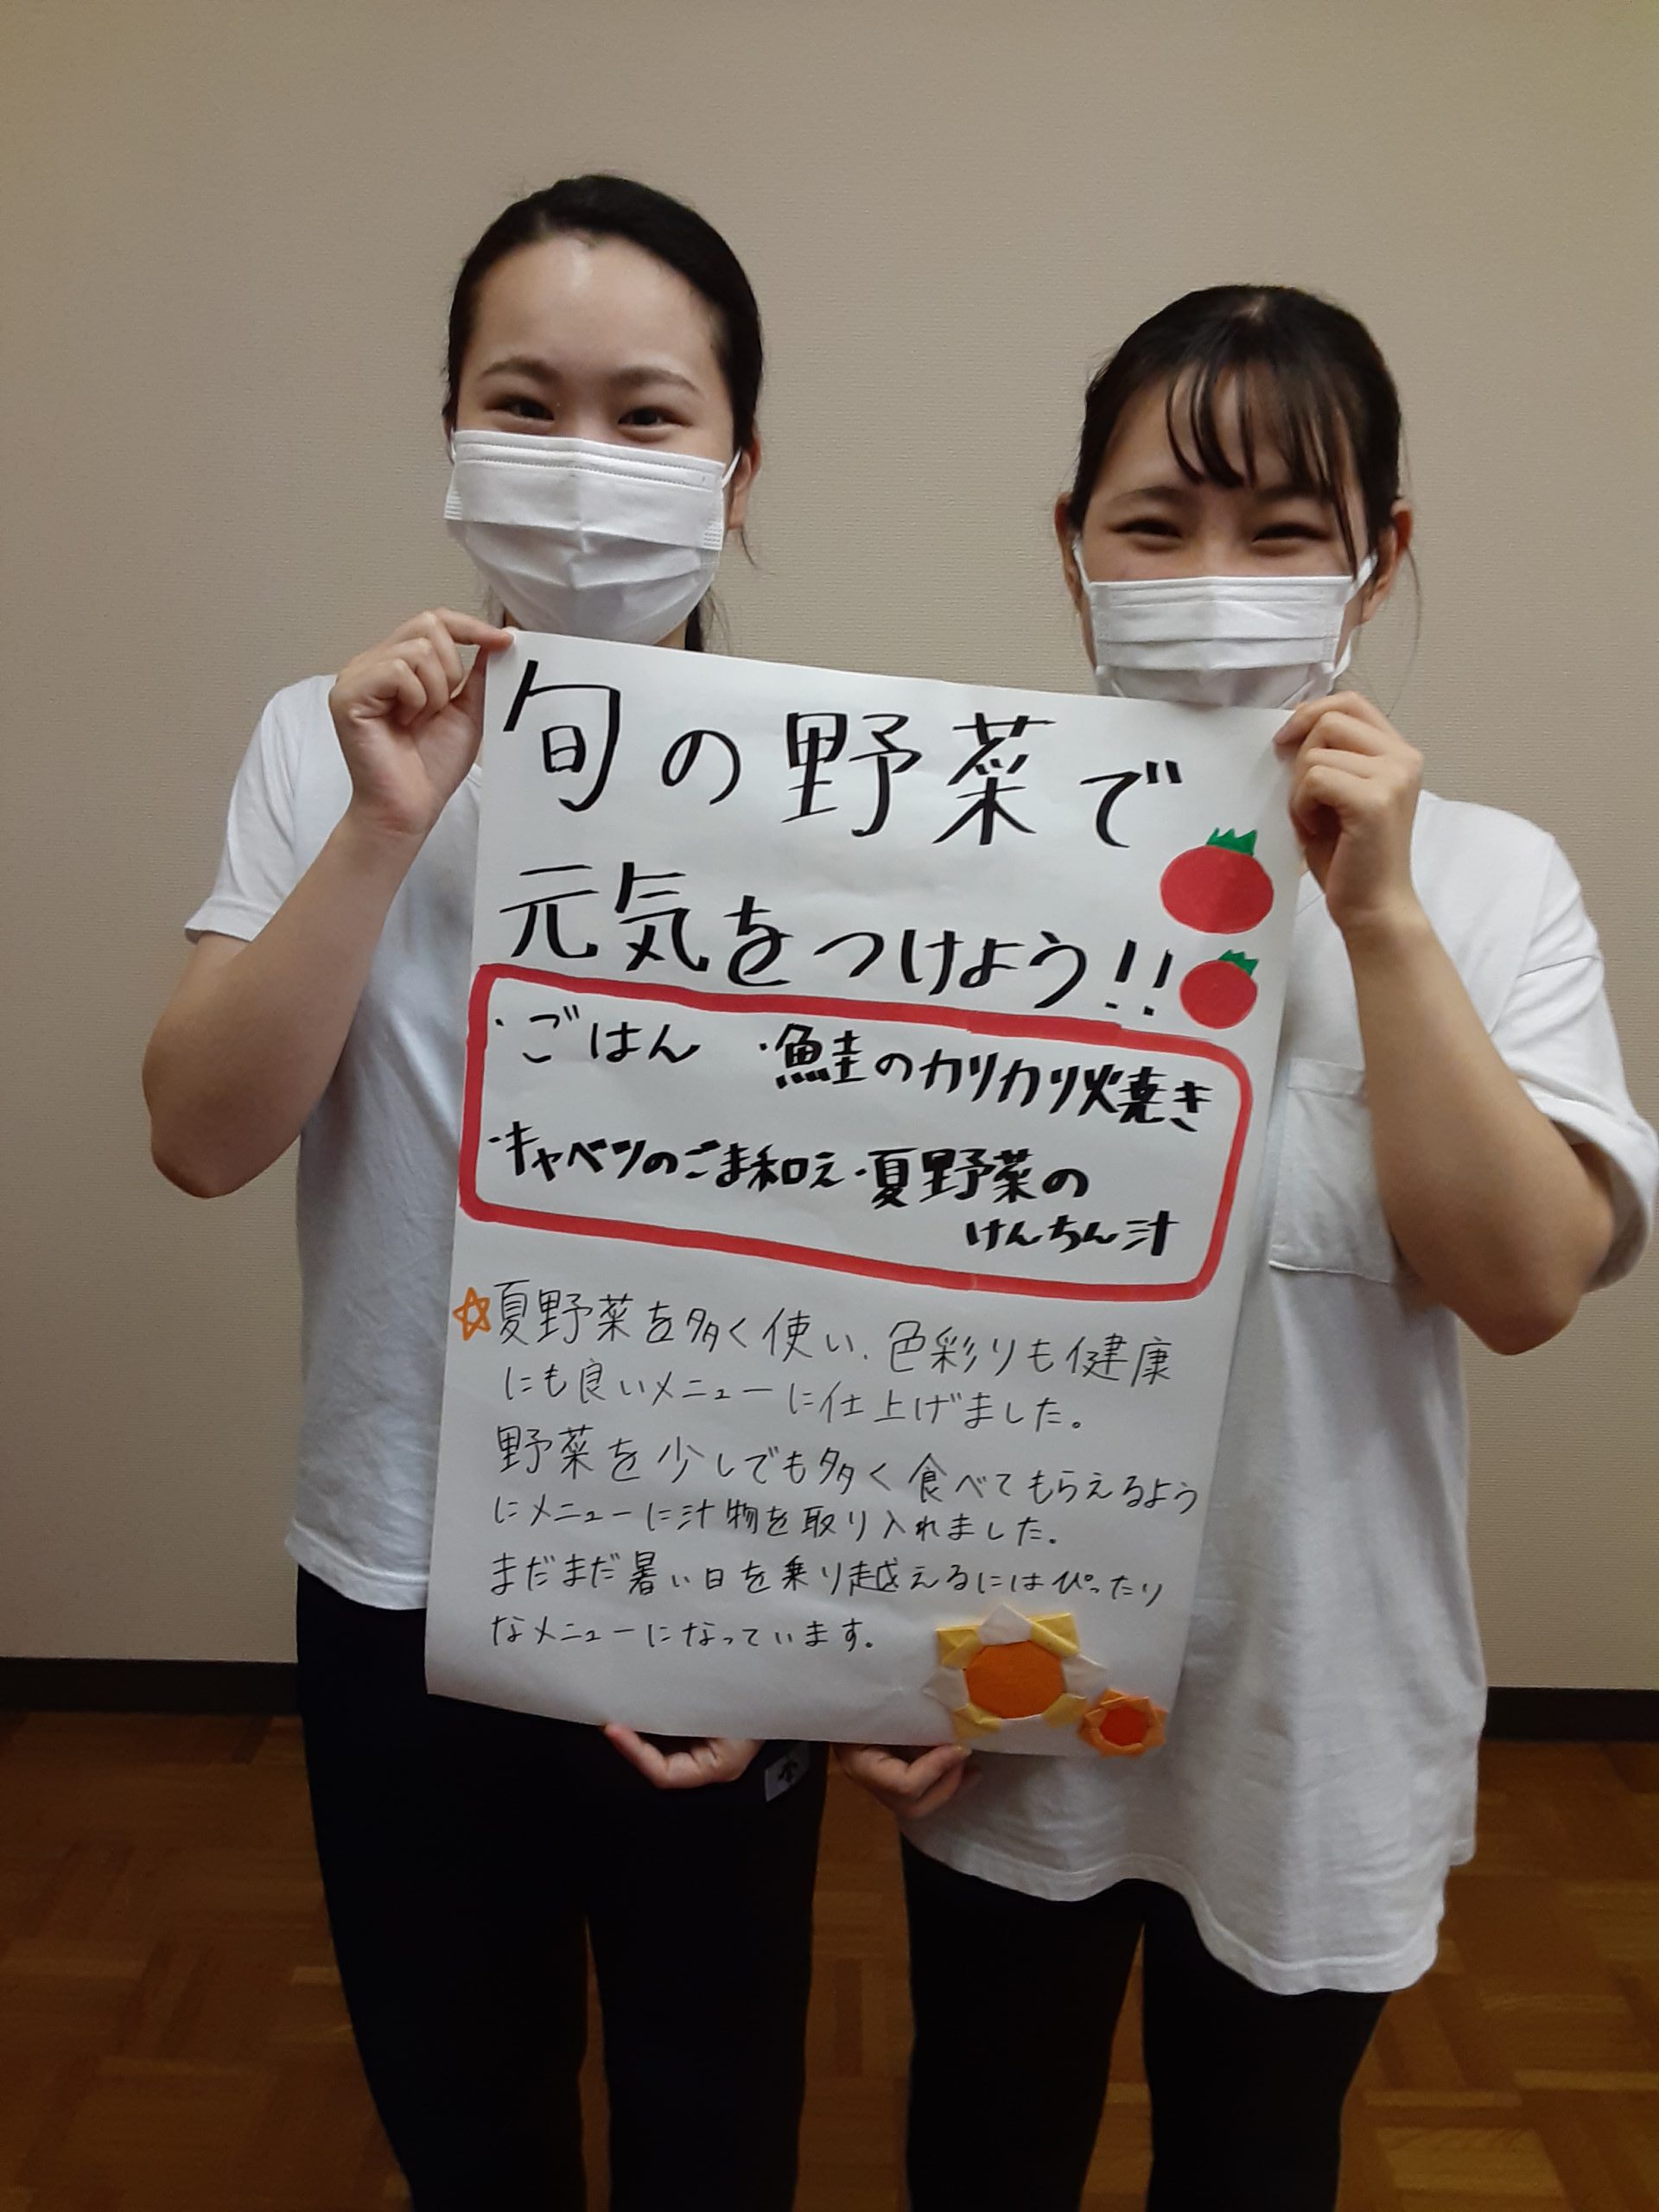 旬の野菜で
元気をつけよう!!
・ごはん ・鮭のカリカリ焼き
・キャベツのごま和え ・夏野菜の
けんちん汁
☆夏野菜を多く使い、色彩りも健康
にも良いメニューに仕上げました。
野菜を少しでも多く食べてもらえるよう
にメニューに汁物を取り入れました。
まだまだ暑い日を乗り越えるにはぴったり
なメニューになっています。